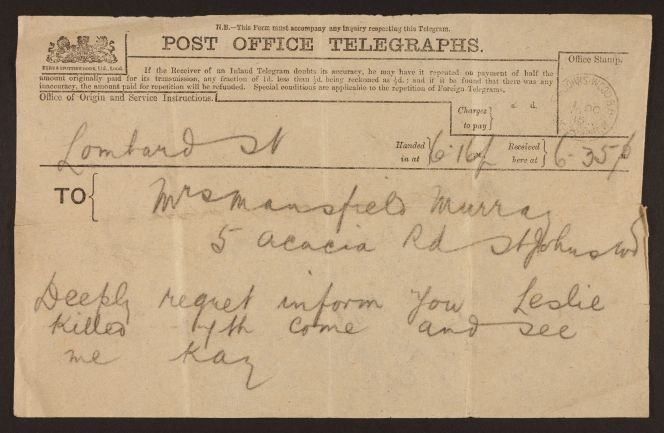 N.B.—This Form must accompany any Inquiry respecting this Telegram.
POST OFFICE TELEGRAPHS.
If the Receiver of an Inland Telegram doubts its accuracy, he may have it repeated on payment of half the
amount originally paid for its transmission, any fraction of 1d. less than ½d. being reckoned as ½d.; and if it be found that there was any
inaccuracy, the amount paid for repetition will be refunded. Special conditions are applicable to the repetition of Foreign Telegrams.
Office Stamp.
Office of Origin and Service Instructions.
Charges to pay
s. d.
Lombard St
Handed in at
6.16 p
Received here at
6.35 p
TO
Mrs Mansfield Murray
5 Acacia Rd St Johns Wd
Deeply regret inform you Leslie
killed 7th come and see
me Kay